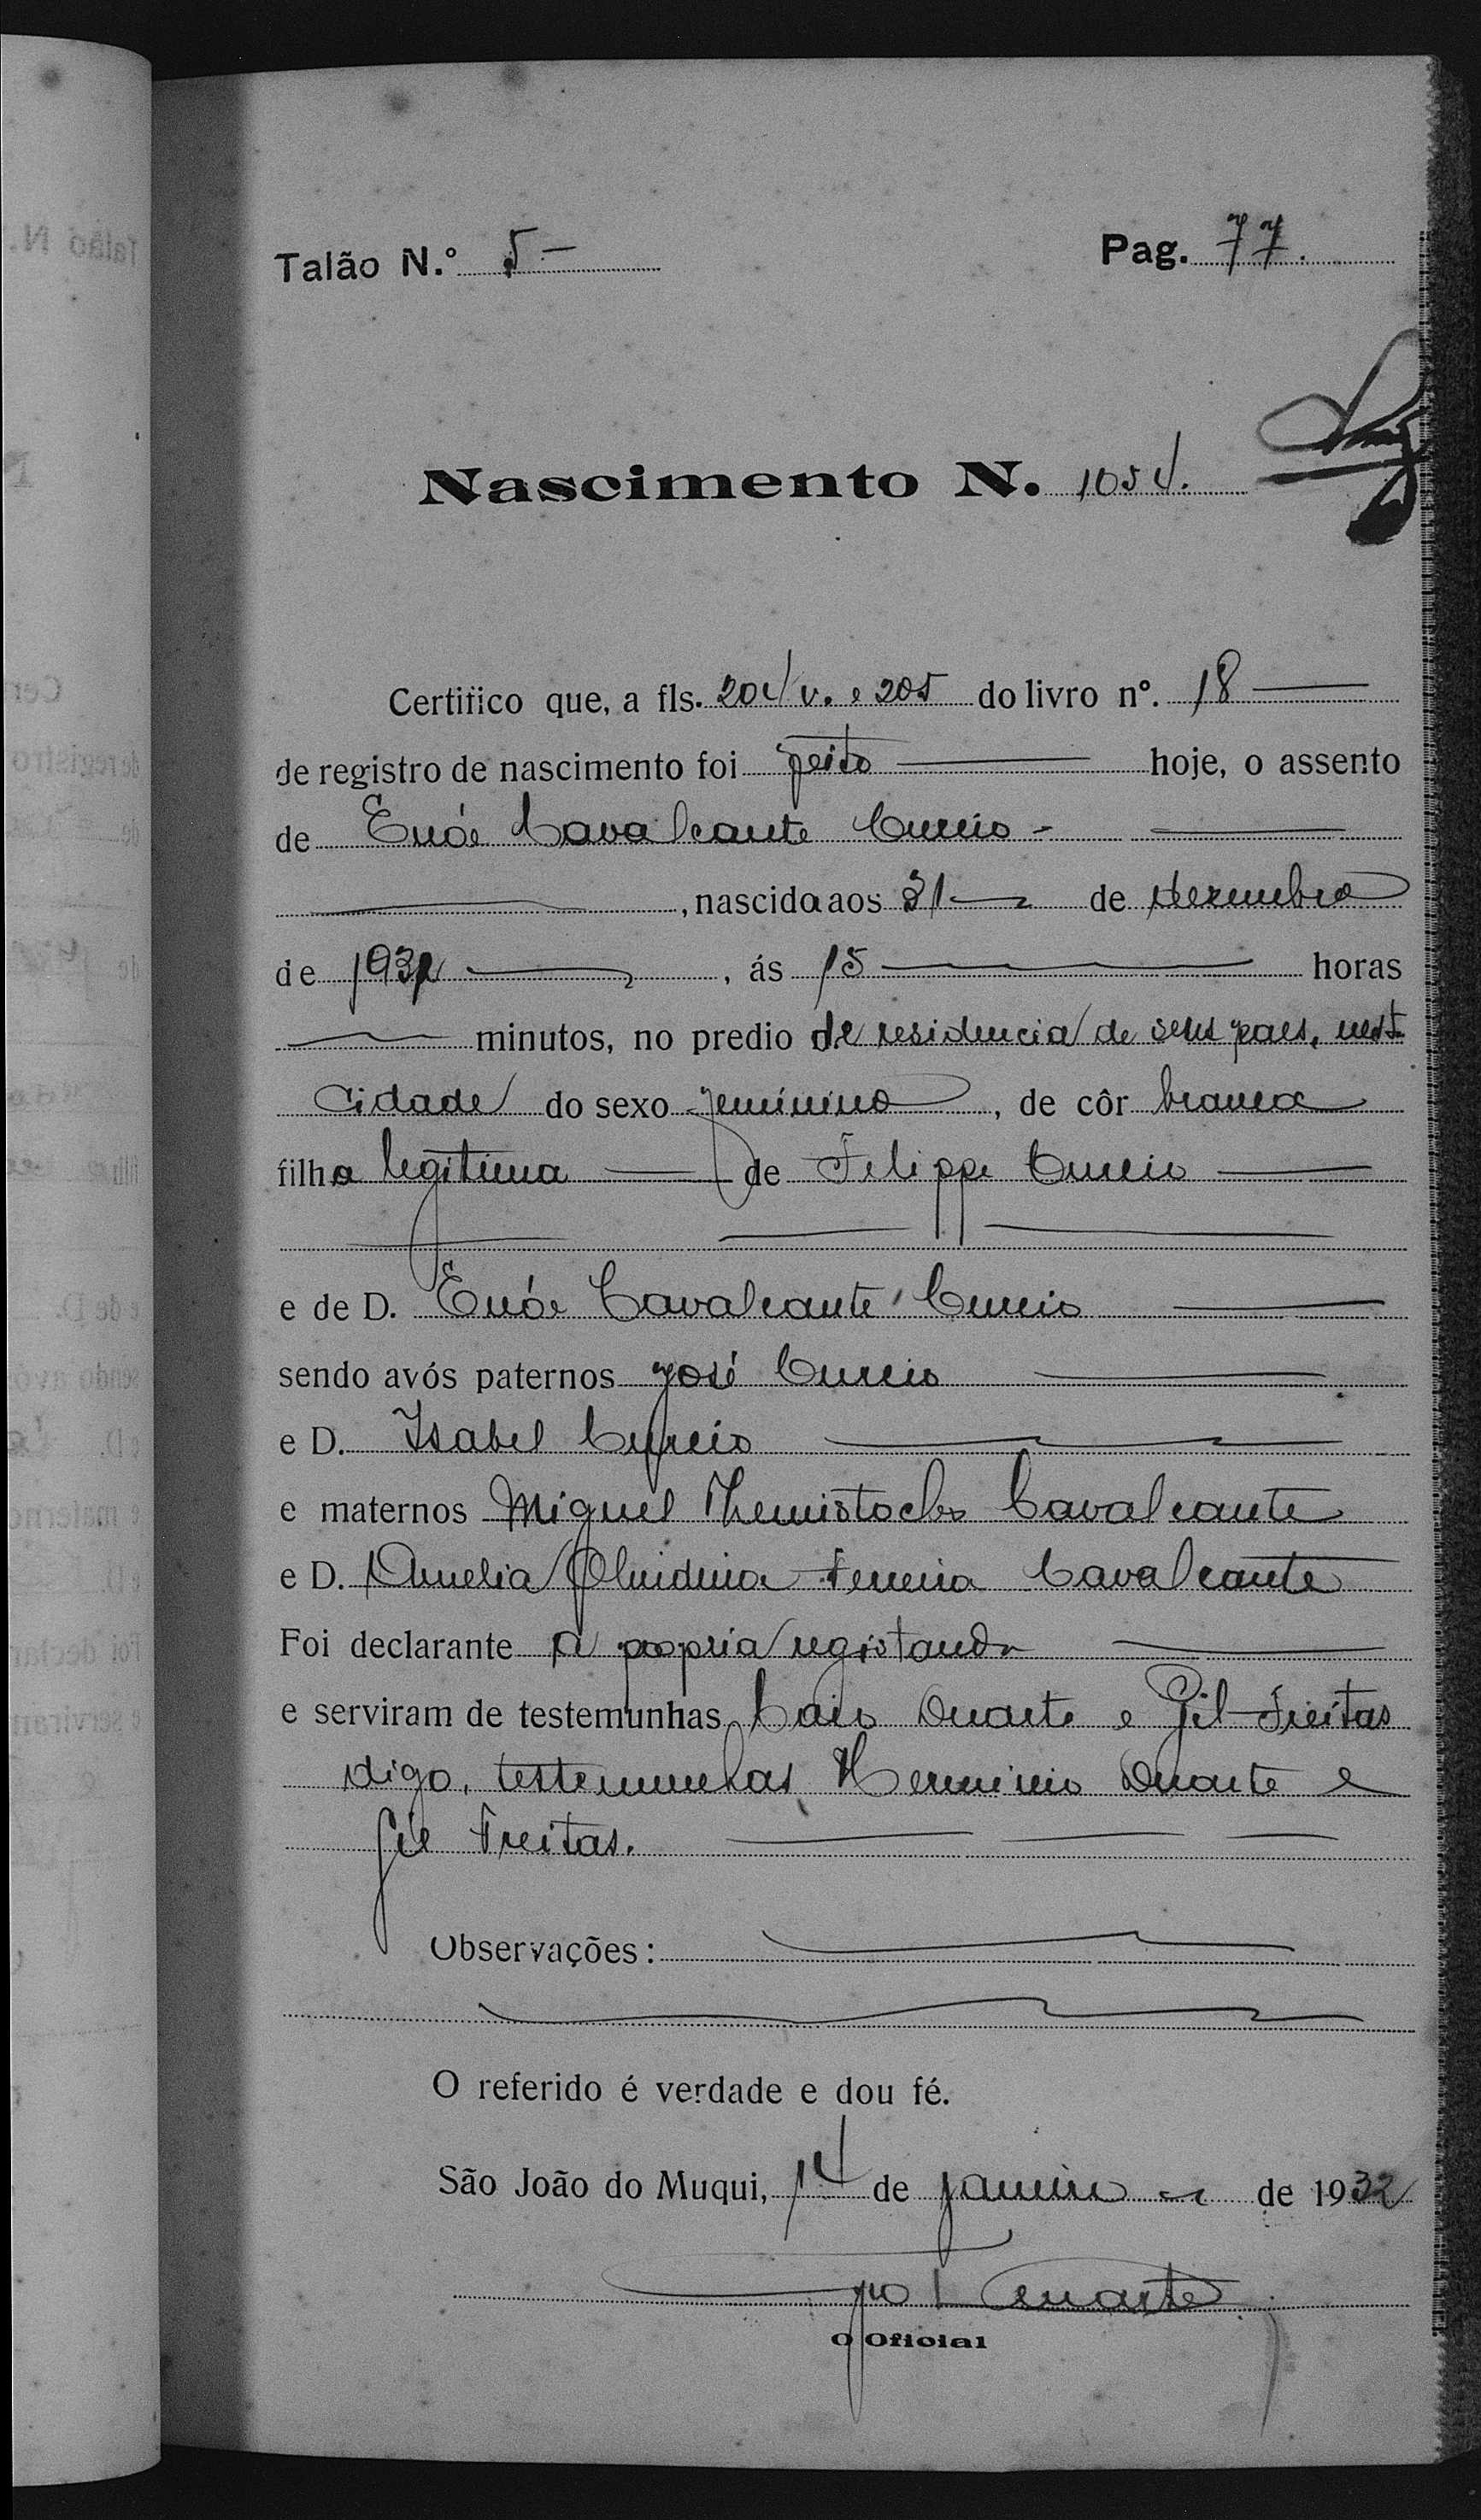 Talão N.º 5 -
Pag. 77.
Nascimento N. 1054.
Certifico que, a fls. 204 v. e 205 do livro nº. 18
de registro de nascimento foi feito hoje, o assento
de Enóe Cavalcante Curcio -
, nascida aos 31 de dezembro
de 1931, ás 15 horas
minutos, no predio de residencia de seus paes, nest
cidade do sexo feminino, de côr branca
filha legitima de Felippe Curcio
e de D. Enóe Cavalcante Curcio
sendo avós paternos José Curcio
e D. Isabel Curcio
e maternos Miguel Themistocles Cavalcante
e D. Amelia Ferreira Cavalcante
Foi declarante a propria registanda
e serviram de testemunhas Caio Duarte e Gil Freitas
digo, testemunhas Herminio Duarte e
Gil Freitas.
Observações:
O referido é verdade e dou fé.
São João do Muqui, 14 de janeiro de 1932
Duarte
O Oficial